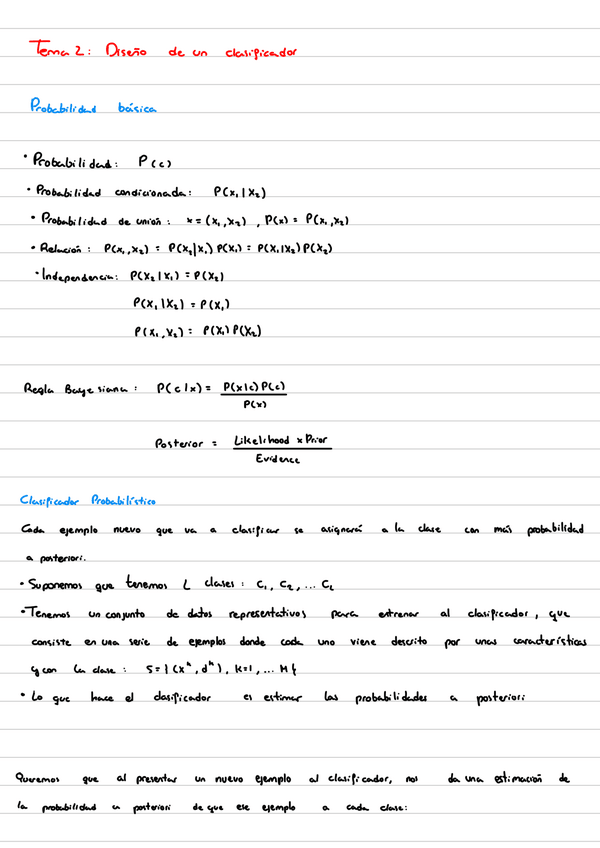 Tema 2: Diseño de un clasificador
Probabilidad básica
• Probabilidad: P(c)
• Probabilidad condicionada: P(x₁|x₂)
• Probabilidad de unión: x=(x₁,x₂), P(x) = P(x₁,x₂)
• Relación: P(x₁,x₂) = P(x₂|x₁)P(x₁) = P(x₁|x₂)P(x₂)
• Independencia: P(x₂|x₁) = P(x₂)
P(x₁|x₂) = P(x₁)
P(x₁,x₂) = P(x₁)P(x₂)
Regla Bayesiana: P(c|x) = P(x|c)P(c) / P(x)
Posterior = Likelihood x Prior / Evidence
Clasificador Probabilístico
Cada ejemplo nuevo que va a clasificar se asignará a la clase con más probabilidad
a posteriori.
• Suponemos que tenemos L clases: C₁, C₂, ... C_L
• Tenemos un conjunto de datos representativos para entrenar al clasificador, que
consiste en una serie de ejemplos donde cada uno viene descrito por unas características
y con la clase: S={(xᵏ,dᵏ), k=1,... M}
• Lo que hace el clasificador es estimar las probabilidades a posteriori
Queremos que al presentar un nuevo ejemplo al clasificador, nos da una estimación de
la probabilidad a posteriori de que ese ejemplo a cada clase: